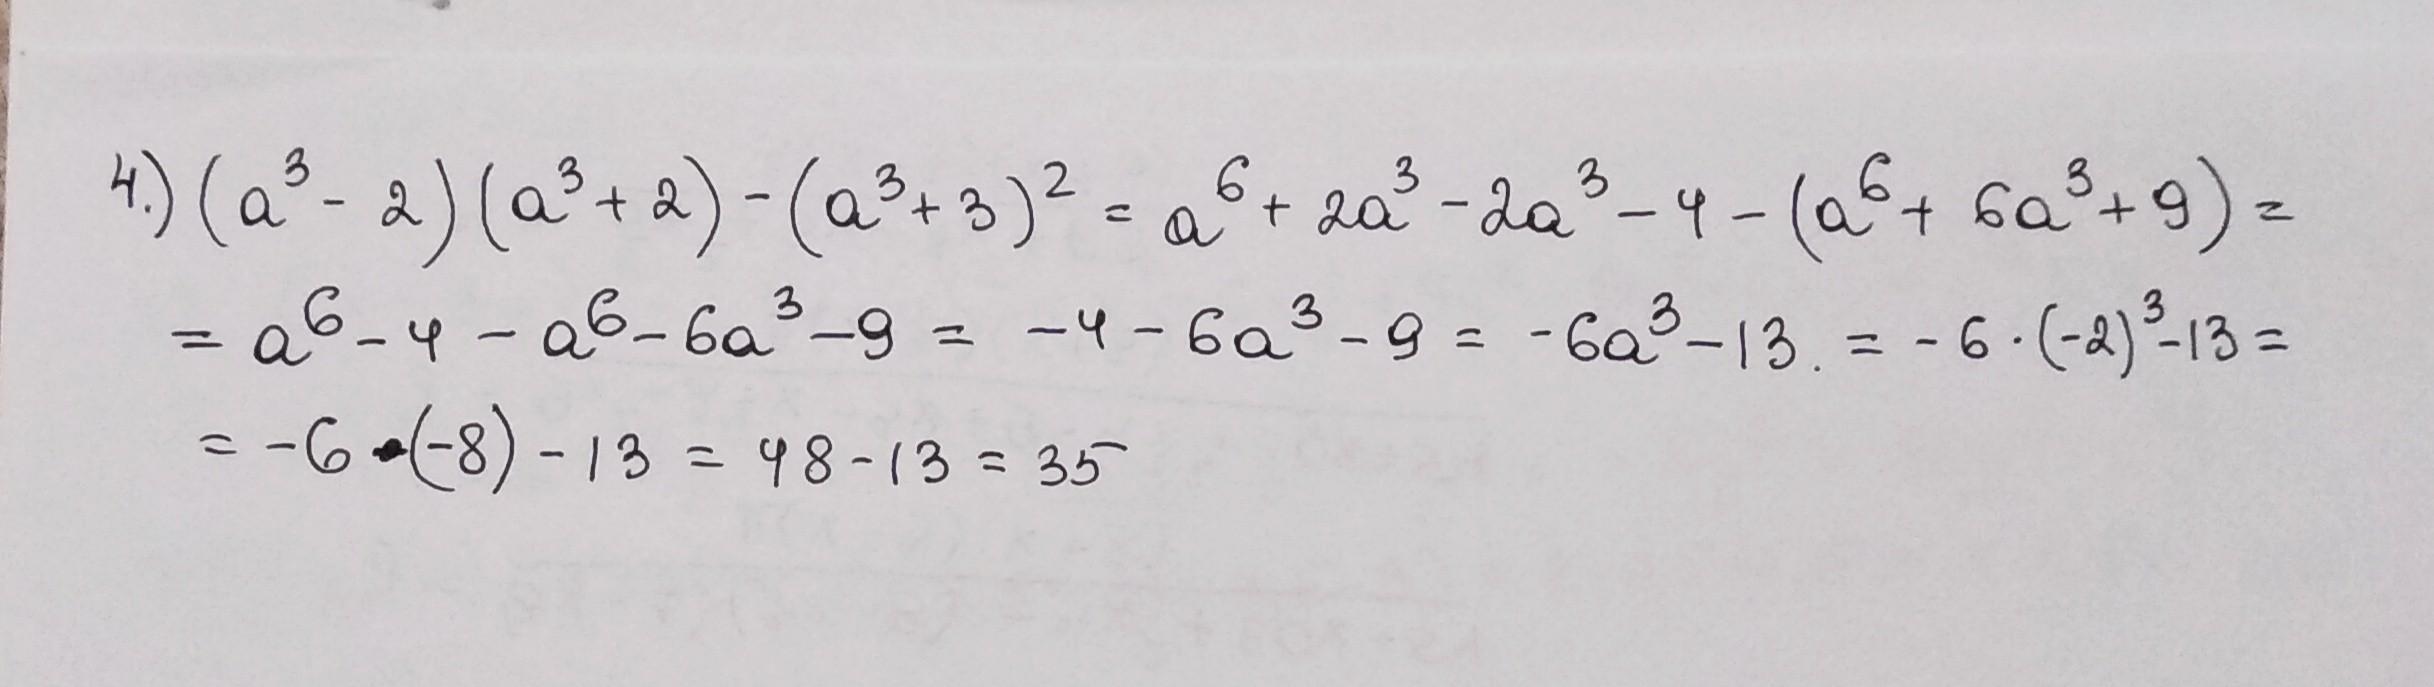 4.) (a³ - 2)(a³ + 2) - (a³ + 3)² = a⁶ + 2a³ - 2a³ - 4 - (a⁶ + 6a³ + 9) =
= a⁶ - 4 - a⁶ - 6a³ - 9 = -4 - 6a³ - 9 = -6a³ - 13. = -6 · (-2)³ - 13 =
= -6 · (-8) - 13 = 48 - 13 = 35